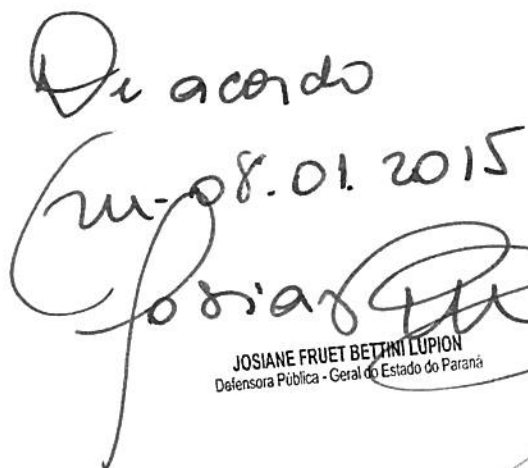 De acordo
Em 08.01.2015
JOSIANE FRUET BETTINI LUPION
Defensora Pública - Geral do Estado do Paraná